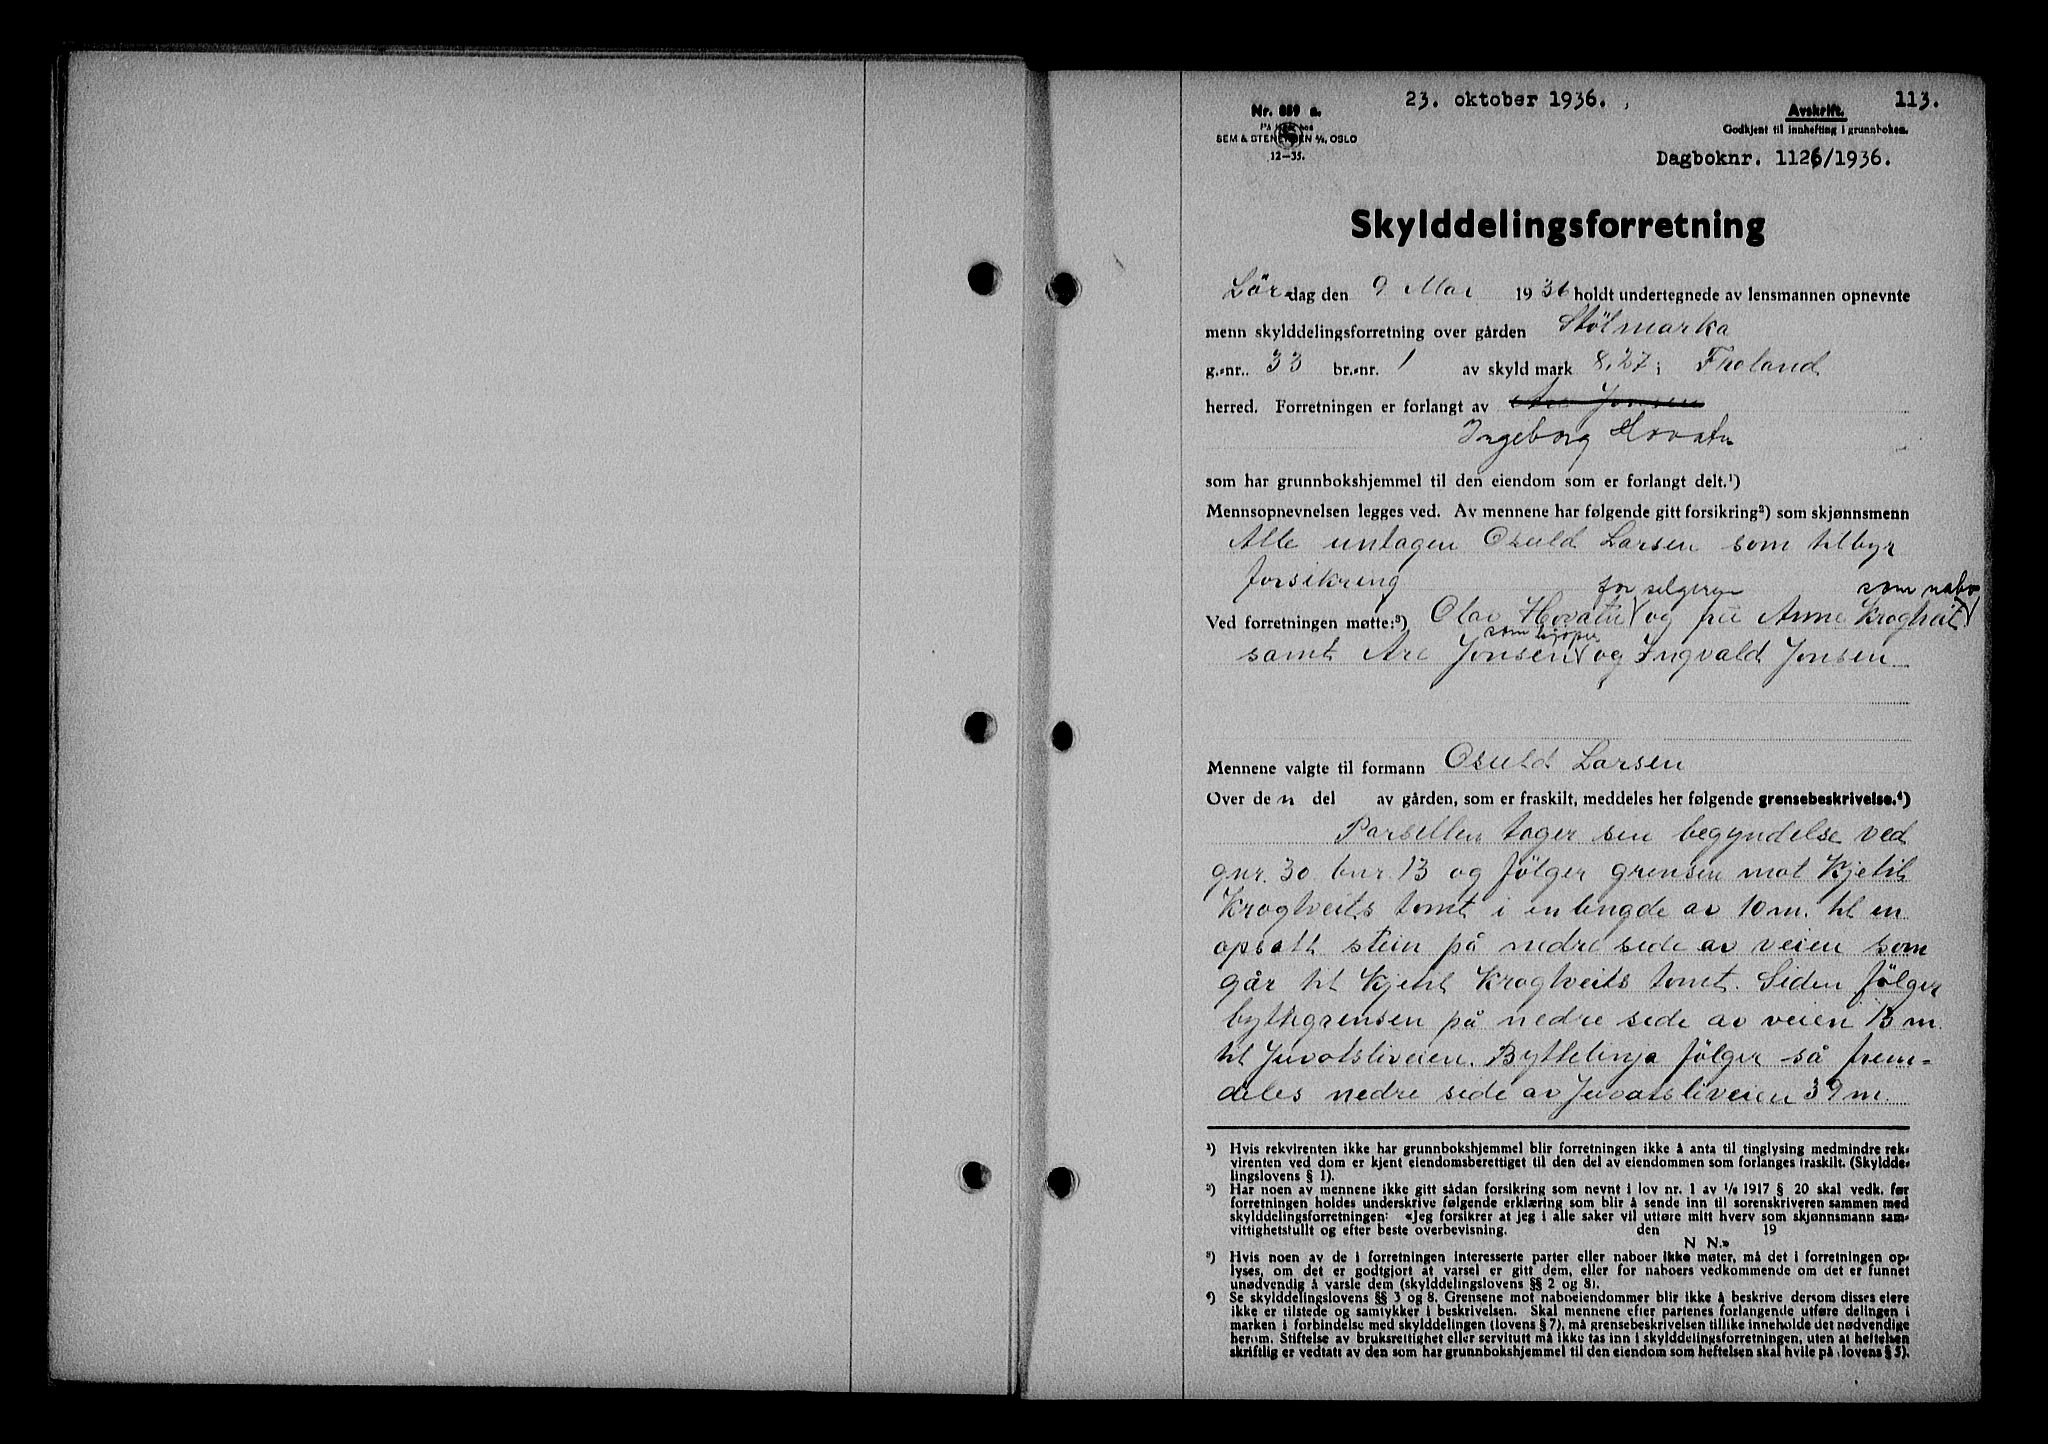 23. oktober 1936.
113.
Nr. 859 a.
På lager hos
SEM & STENERSEN A/S, OSLO
12-35.
Avskrift.
Godkjent til innhefting i grunnboken.
Dagboknr. 1126/1936.
Skylddelingsforretning
Lör-dag den 9 Mai 1936 holdt undertegnede av lensmannen opnevnte
menn skylddelingsforretning over gården Stölmarka
g.-nr. 33 br.-nr. 1 av skyld mark 8,27 i Froland
herred. Forretningen er forlangt av Are Jonsen
Ingeborg Hovatn
som har grunnbokshjemmel til den eiendom som er forlangt delt.¹)
Mennsopnevnelsen legges ved. Av mennene har følgende gitt forsikring²) som skjønnsmenn
Alle untagen Osuld Larsen som tilbyr
forsikring
for selgeren som nabo
Ved forretningen møtte:³) Olav Hovatn og fru Anne Krogtveit
som kjöper
samt Are Jonsen og Ingvald Jonsen
Mennene valgte til formann Osuld Larsen
Over de n del av gården, som er fraskilt, meddeles her følgende grensebeskrivelse.⁴)
Parsellen tager sin begyndelse ved
gnr. 30 bnr. 13 og fölger grensen mot Kjetil
Krogtveits tomt i en lengde av 10 m. til en
opsatt stein på nedre side av veien som
går til Kjetil Krogtveits tomt. Siden fölger
byttegrensen på nedre side av veien 13 m.
til Juvatsliveien. Byttelinja fölger så frem-
deles nedre side av Juvatsliveien 39 m.
¹) Hvis rekvirenten ikke har grunnbokshjemmel blir forretningen ikke å anta til tinglysing medmindre rek-
virenten ved dom er kjent eiendomsberettiget til den del av eiendommen som forlanges fraskilt. (Skyldde-
lingslovens § 1).
²) Har noen av mennene ikke gitt sådan forsikring som nevnt i lov nr. 1 av 1/6 1917 § 20 skal vedk. før
forretningen holdes underskrive følgende erklæring som blir å sende inn til sorenskriveren sammen med
skylddelingsforretningen: «Jeg forsikrer at jeg i alle saker vil utføre mitt hverv som skjønnsmann sam-
vittighetsfullt og efter beste overbevisning. den 19
N N.»
³) Hvis noen av de i forretningen interesserte parter eller naboer ikke møter, må det i forretningen op-
lyses, om det er godtgjort at varsel er gitt dem, eller for naboers vedkommende om det er funnet
unødvendig å varsle dem (skylddelingslovens §§ 2 og 8).
⁴) Se skylddelingslovens §§ 3 og 8. Grensene mot naboeiendommer blir ikke å beskrive dersom disses eiere
ikke er tilstede og samtykker i beskrivelsen. Skal mennene efter partenes forlangende utføre delingen i
marken i forbindelse med skylddelingen (lovens § 7), må grensebeskrivelsen tillike inneholde det nødvendige
herom. Stiftelse av bruksrettighet eller servitutt må ikke tas inn i skylddelingsforretningen, uten at heftelsen
skriftlig er vedtatt av den som har grunnbokshjemmel til den eiendom som heftelsen skal hvile på (lovens § 5).